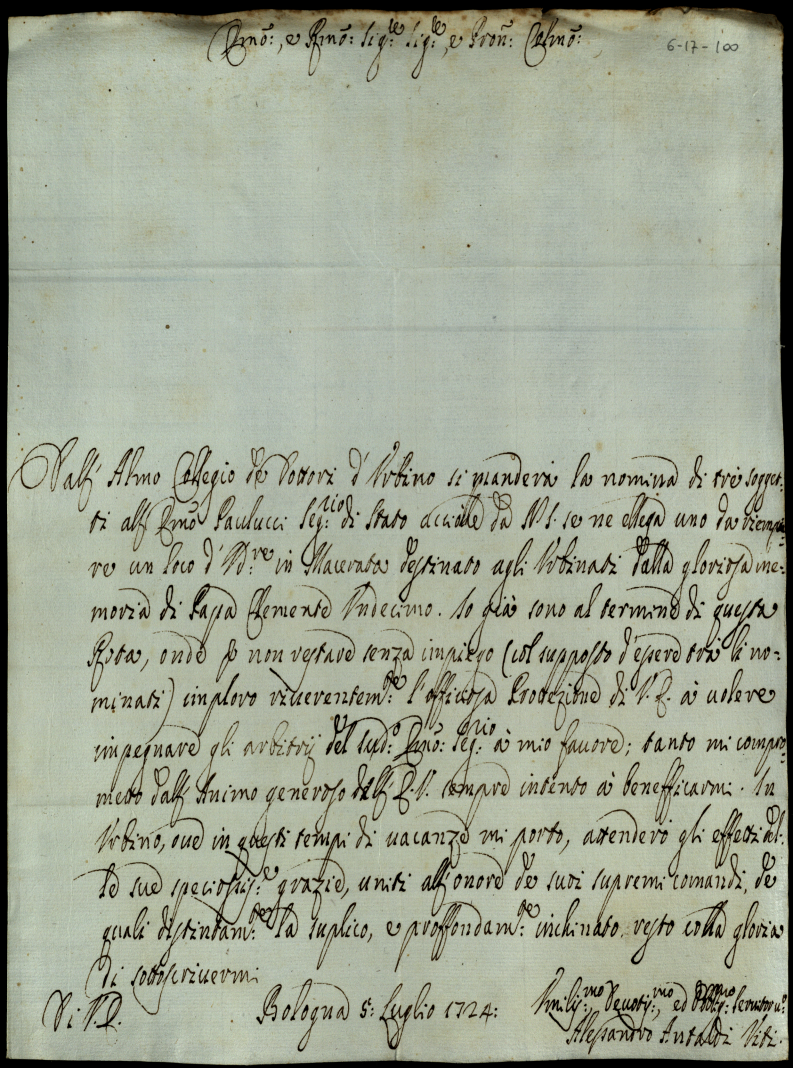 Emo:, e Rmo: Sigre: Sigre:, e Pron: Colmo:
6-17-100
Dall' Almo Collegio de Dottori d'Urbino si manderà la nomina di trè sogget-
ti all' Emo Paulucci Segrio: di Stato acciòche da N. S. se ne ellega uno da riempi=
re un loco d'Vdre: in Macerata destinato agli Urbinati dalla gloriosa me-
moria di Papa Clemente Undecimo. Io già sono al termine di questa
Rota, onde p non restare senza impiego (col supposto d'essere trà li no=
minati) imploro riverentemte: l'officiosa Protezione di V. E. à volere
impegnare gli arbitrij del sudo: Emo: Segrio: à mio favore; tanto mi compro=
metto dall' Animo generoso dell' E. V. sempre intento à benefficarmi. In
Urbino, ove in questi tempi di vacanze mi porto, attenderò gli effetti del-
le sue speciosisse: grazie, uniti all' onore de suoi supremi comandi, de
quali distintamte: la suplico, e proffondamte: inchinato resto colla gloria
di sottoscrivermi
Di V. E. Bologna 5: Luglio 1724: Umilismo: Devotismo:, ed Obblmo: Servitore:
Alessandro Antaldi Viti.